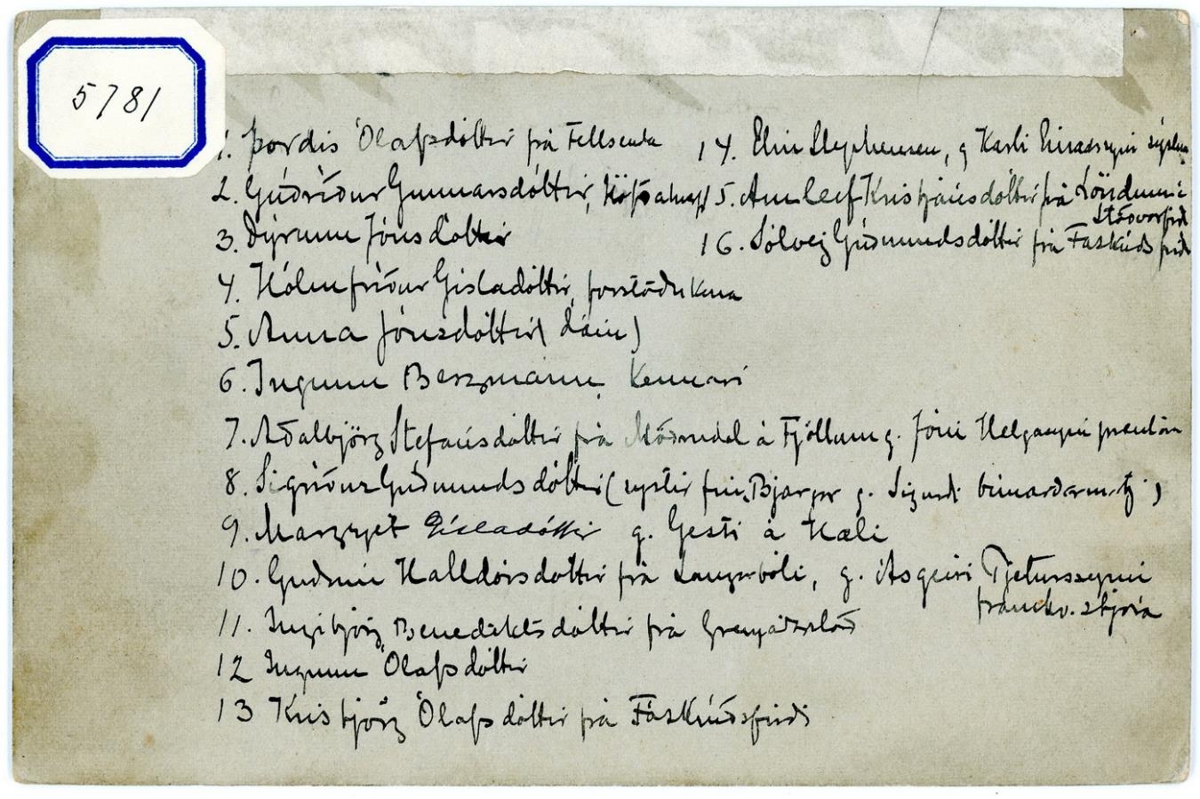 5781
1. Þordis Ólafsdóttir frá Fellsenda
2. Guðríður Gunnarsdóttir,
3. Þýrunn Jónsdóttir
4. Hólmfríður Gisladóttir, forstöðukona
5. Anna Jónsdóttir (dáin)
6. Ingunn Bergmann, Kennari
7. Aðalbjörg Stefánsdóttir frá Möðrudal á Fjöllum g. Jóni Helgasyni prentara
8. Sigríður Guðmundsdóttir (systir g. Sigurði búnaðarm.stj.)
9. Margrjet Gísladóttir g. Gesti á Hæli
10. Guðrún Halldórsdóttir frá g. Ásgeiri Pjeturssyni
framkv. stjóra
11. Ingibjörg Benediktsdóttir frá Grenjaðarstað
12 Ingunn Ólafsdóttir
13 Kristbjörg Ólafsdóttir frá Fáskrúðsfirði
14. Elin Stephensen, g Karli Einarssyni sýslum
15. Kristjánsdóttir frá
Stöðvarfirði
16. Sólveig Guðmundsdóttir frá Fáskrúðsfirði